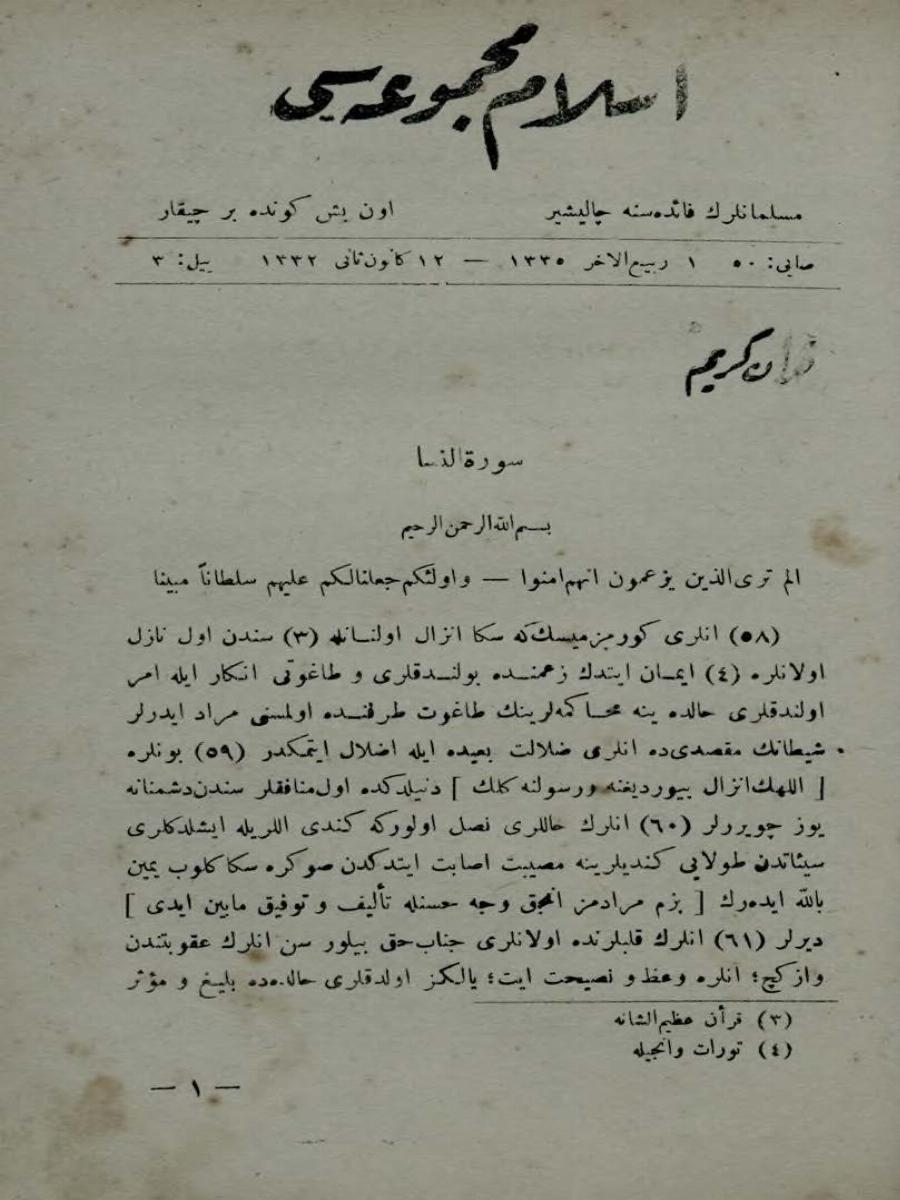 اسلام مجموعه‌سی
مسلمانلرك فائده‌سنه چالیشیر اون بش كونده بر چیقار
صایی: ٥٠ ١ ربیع‌الاخر ١٣٣٥ — ١٢ كانون ثانی ١٣٣٢ ییل: ٣
قرآن كریم
سورة النسا
بسم الله الرحمن الرحیم
الم تری الذین یزعمون انهم امنوا — و اولئكم جعلنا لكم علیهم سلطاناً مبینا
(٥٨) انلری كورمزمیسك كه سكا انزال اولنانله (٣) سندن اول نازل
اولانلره (٤) ایمان ایتدك زعمنده بولندقلری و طاغوتی انكار ایله امر
اولندقلری حالده ینه محاكمه‌لرینك طاغوت طرفنده اولمسنی مراد ایدرلر
شیطانك مقصدی‌ده انلری ضلالت بعیده ایله اضلال ایتمكدر (٥٩) بونلره
[ اللهك انزال بیوردیغنه و رسولنه كلك ] دنیلدكده اول منافقلر سندن دشمنانه
یوز چویررلر (٦٠) انلرك حاللری نصل اولوركه كندی اللریله ایشلدكلری
سیئاتدن طولایی كندیلرینه مصیبت اصابت ایتدكدن صوكره سكا كلوب یمین
بالله ایده‌رك [ بزم مرادمز انجق وجه حسنله تألیف و توفیق مابین ایدی ]
دیرلر (٦١) انلرك قلبلرنده اولانلری جناب حق بیلور سن انلرك عقوبتندن
وازكچ؛ انلره وعظ و نصیحت ایت؛ یالكز اولدقلری حالده‌ده بلیغ و مؤثر
(٣) قرأن عظیم الشانه
(٤) تورات وانجیله
— ١ —